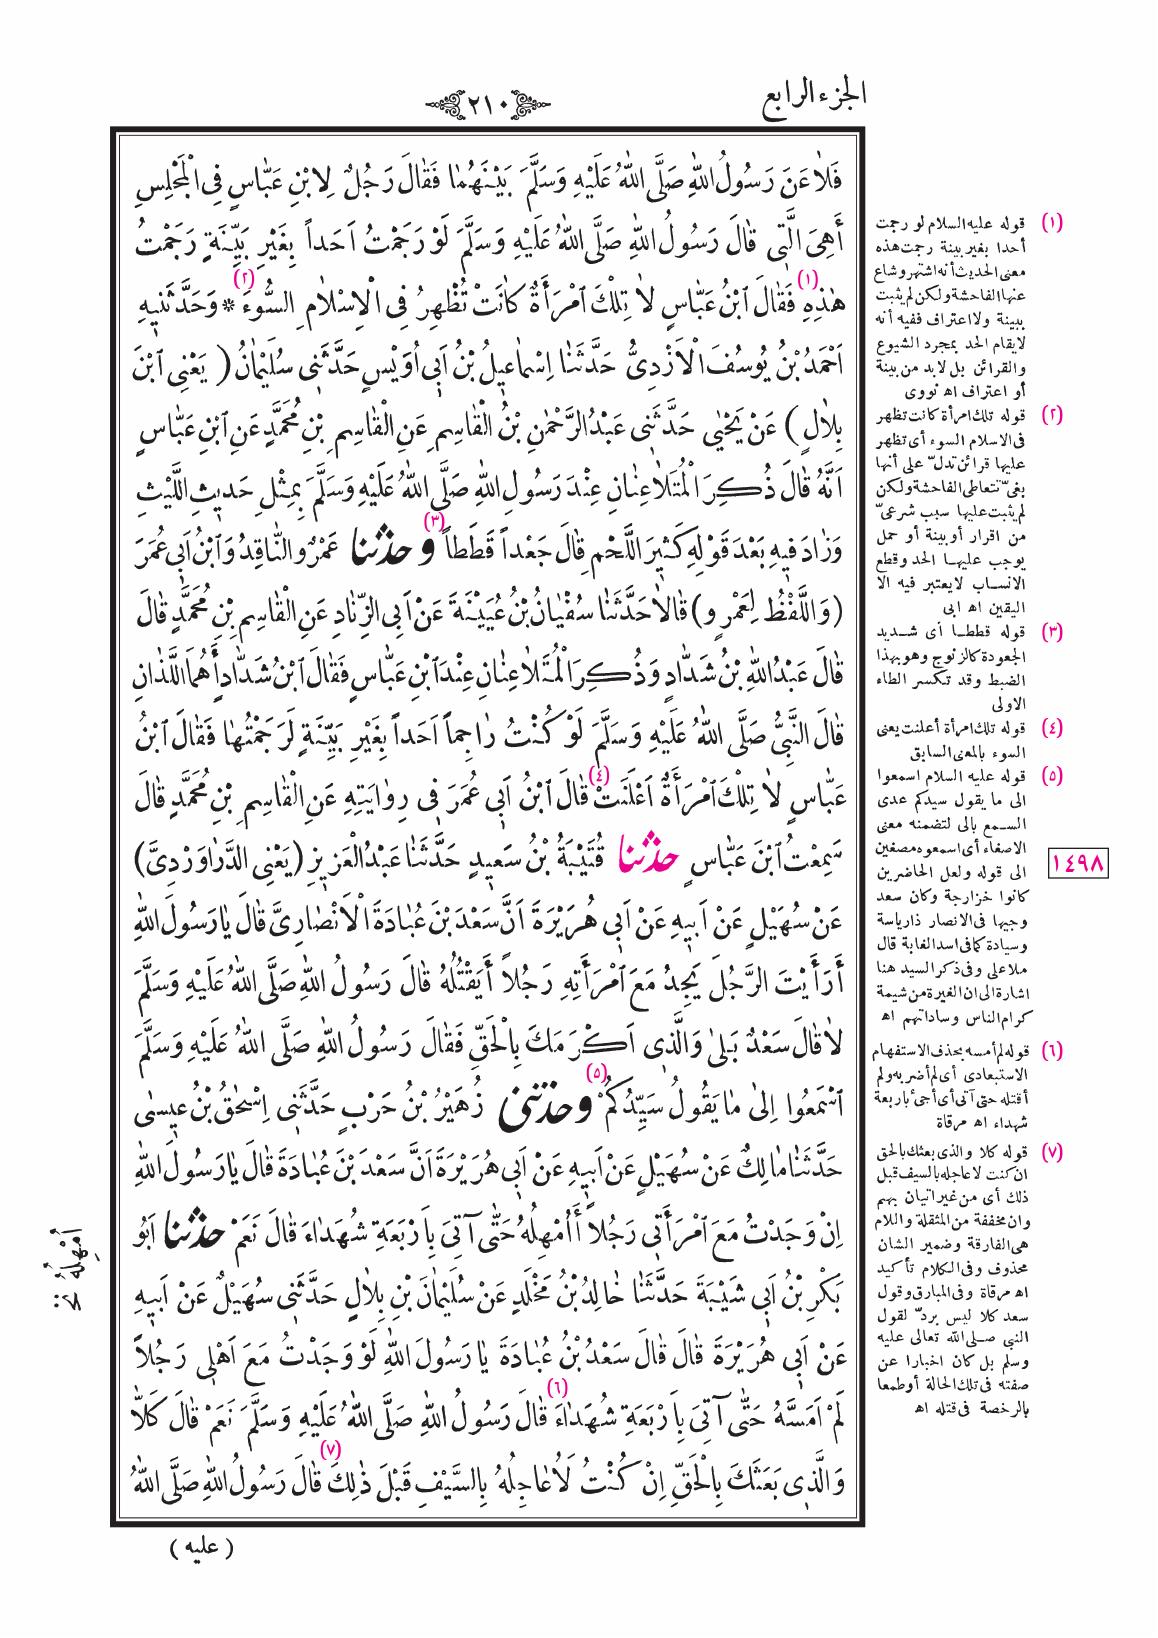 الجزء الرابع
٢١٠
فَلَاعَنَ رَسُولُ اللّٰهِ صَلَّى اللّٰهُ عَلَيْهِ وَسَلَّمَ بَيْنَهُمَا فَقَالَ رَجُلٌ لِابْنِ عَبَّاسٍ فِى الْمَجْلِسِ
أَهِىَ الَّتِى قَالَ رَسُولُ اللّٰهِ صَلَّى اللّٰهُ عَلَيْهِ وَسَلَّمَ لَوْ رَجَمْتُ اَحَداً بِغَيْرِ بَيِّنَةٍ رَجَمْتُ
هٰذِهِ (١) فَقَالَ ابْنُ عَبَّاسٍ لَا تِلْكَ امْرَأَةٌ كَانَتْ تُظْهِرُ فِى الْاِسْلَامِ السُّوءَ (٢) * وَحَدَّثَنِيهِ
اَحْمَدُ بْنُ يُوسُفَ الْاَزْدِىُّ حَدَّثَنَا اِسْمَاعِيلُ بْنُ اَبِى اُوَيْسٍ حَدَّثَنِى سُلَيْمَانُ (يَعْنِى ابْنَ
بِلَالٍ) عَنْ يَحْيٰى حَدَّثَنِى عَبْدُ الرَّحْمٰنِ بْنُ الْقَاسِمِ عَنِ الْقَاسِمِ بْنِ مُحَمَّدٍ عَنِ ابْنِ عَبَّاسٍ
اَنَّهُ قَالَ ذُكِرَ الْمُتَلَاعِنَانِ عِنْدَ رَسُولِ اللّٰهِ صَلَّى اللّٰهُ عَلَيْهِ وَسَلَّمَ بِمِثْلِ حَدِيثِ اللَّيْثِ
وَزَادَ فِيهِ بَعْدَ قَوْلِهِ كَثِيرَ اللَّحْمِ قَالَ جَعْداً قَطَطاً (٣) وحدثنا عَمْرٌو النَّاقِدُ وَابْنُ اَبِى عُمَرَ
(وَاللَّفْظُ لِعَمْرٍو) قَالَا حَدَّثَنَا سُفْيَانُ بْنُ عُيَيْنَةَ عَنْ اَبِى الزِّنَادِ عَنِ الْقَاسِمِ بْنِ مُحَمَّدٍ قَالَ
قَالَ عَبْدُ اللّٰهِ بْنُ شَدَّادٍ وَذُكِرَ الْمُتَلَاعِنَانِ عِنْدَ ابْنِ عَبَّاسٍ فَقَالَ ابْنُ شَدَّادٍ أَهُمَا اللَّذَانِ
قَالَ النَّبِىُّ صَلَّى اللّٰهُ عَلَيْهِ وَسَلَّمَ لَوْ كُنْتُ رَاجِماً اَحَداً بِغَيْرِ بَيِّنَةٍ لَرَجَمْتُهَا فَقَالَ ابْنُ
عَبَّاسٍ لَا تِلْكَ امْرَأَةٌ اَعْلَنَتْ (٤) قَالَ ابْنُ اَبِى عُمَرَ فِى رِوَايَتِهِ عَنِ الْقَاسِمِ بْنِ مُحَمَّدٍ قَالَ
سَمِعْتُ ابْنَ عَبَّاسٍ حدثنا قُتَيْبَةُ بْنُ سَعِيدٍ حَدَّثَنَا عَبْدُ الْعَزِيزِ (يَعْنِى الدَّرَاوَرْدِىَّ)
عَنْ سُهَيْلٍ عَنْ اَبِيهِ عَنْ اَبِى هُرَيْرَةَ اَنَّ سَعْدَ بْنَ عُبَادَةَ الْاَنْصَارِىَّ قَالَ يَا رَسُولَ اللّٰهِ
أَرَأَيْتَ الرَّجُلَ يَجِدُ مَعَ امْرَأَتِهِ رَجُلاً أَيَقْتُلُهُ قَالَ رَسُولُ اللّٰهِ صَلَّى اللّٰهُ عَلَيْهِ وَسَلَّمَ
لَا قَالَ سَعْدٌ بَلٰى وَالَّذِى اَكْرَمَكَ بِالْحَقِّ فَقَالَ رَسُولُ اللّٰهِ صَلَّى اللّٰهُ عَلَيْهِ وَسَلَّمَ
اسْمَعُوا اِلٰى مَا يَقُولُ سَيِّدُكُمْ (٥) وحدثنى زُهَيْرُ بْنُ حَرْبٍ حَدَّثَنِى اِسْحٰقُ بْنُ عِيسٰى
حَدَّثَنَا مَالِكٌ عَنْ سُهَيْلٍ عَنْ اَبِيهِ عَنْ اَبِى هُرَيْرَةَ اَنَّ سَعْدَ بْنَ عُبَادَةَ قَالَ يَا رَسُولَ اللّٰهِ
اِنْ وَجَدْتُ مَعَ امْرَأَتِى رَجُلاً أَأُمْهِلُهُ حَتّٰى آتِىَ بِاَرْبَعَةِ شُهَدَاءَ قَالَ نَعَمْ حدثنا اَبُو
بَكْرِ بْنُ اَبِى شَيْبَةَ حَدَّثَنَا خَالِدُ بْنُ مَخْلَدٍ عَنْ سُلَيْمَانَ بْنِ بِلَالٍ حَدَّثَنِى سُهَيْلٌ عَنْ اَبِيهِ
عَنْ اَبِى هُرَيْرَةَ قَالَ قَالَ سَعْدُ بْنُ عُبَادَةَ يَا رَسُولَ اللّٰهِ لَوْ وَجَدْتُ مَعَ اَهْلِى رَجُلاً
لَمْ اَمَسَّهُ حَتّٰى آتِىَ بِاَرْبَعَةِ شُهَدَاءَ (٦) قَالَ رَسُولُ اللّٰهِ صَلَّى اللّٰهُ عَلَيْهِ وَسَلَّمَ نَعَمْ قَالَ كَلَّا
وَالَّذِى بَعَثَكَ بِالْحَقِّ اِنْ كُنْتُ لَاُعَاجِلُهُ بِالسَّيْفِ قَبْلَ ذٰلِكَ (٧) قَالَ رَسُولُ اللّٰهِ صَلَّى اللّٰهُ
(عليه)
(١) قوله عليه السلام لو رجمت
أحدا بغير بينة رجمت هذه
معنى الحديث أنه اشتهر وشاع
عنها الفاحشة ولكن لم يثبت
ببينة ولا اعتراف ففيه أنه
لا يقام الحد بمجرد الشيوع
والقرائن بل لابد من بينة
أو اعتراف اه نووى
(٢) قوله تلك امرأة كانت تظهر
فى الاسلام السوء أى تظهر
عليها قرائن تدلّ على أنها
بغىّ تتعاطى الفاحشة ولكن
لم يثبت عليها سبب شرعىّ
من اقرار أو بينة أو حمل
يوجب عليها الحد وقطع
الانساب لا يعتبر فيه الا
اليقين اه ابى
(٣) قوله قططا أى شديد
الجعودة كالزنوج وهو بهذا
الضبط وقد تكسر الطاء
الاولى
(٤) قوله تلك امرأة أعلنت يعنى
السوء بالمعنى السابق
(٥) قوله عليه السلام اسمعوا
الى ما يقول سيدكم عدى
السمع بالى لتضمنه معنى
الاصغاء أى اسمعوه مصغين
الى قوله ولعل الحاضرين
كانوا خزارجة وكان سعد
وجيها فى الانصار ذا رياسة
وسيادة كما فى اسد الغابة قال
ملا على وفى ذكر السيد هنا
اشارة الى ان الغيرة من شيمة
كرام الناس وساداتهم اه
(٦) قوله لم أمسه بحذف الاستفهام
الاستبعادى أى لم أضربه ولم
أقتله حتى آتى أى أجئ باربعة
شهداء اه مرقاة
(٧) قوله كلا والذى بعثك بالحق
ان كنت لاعاجله بالسيف قبل
ذلك أى من غير اتيان بهم
وان مخففة من المثقلة واللام
هى الفارقة وضمير الشان
محذوف وفى الكلام تأكيد
اه مرقاة وفى المبارق وقول
سعد كلا ليس بردّ لقول
النبى صلى الله تعالى عليه
وسلم بل كان اخبارا عن
صفته فى تلك الحالة أو طمعا
بالرخصة فى قتله اه
١٤٩٨